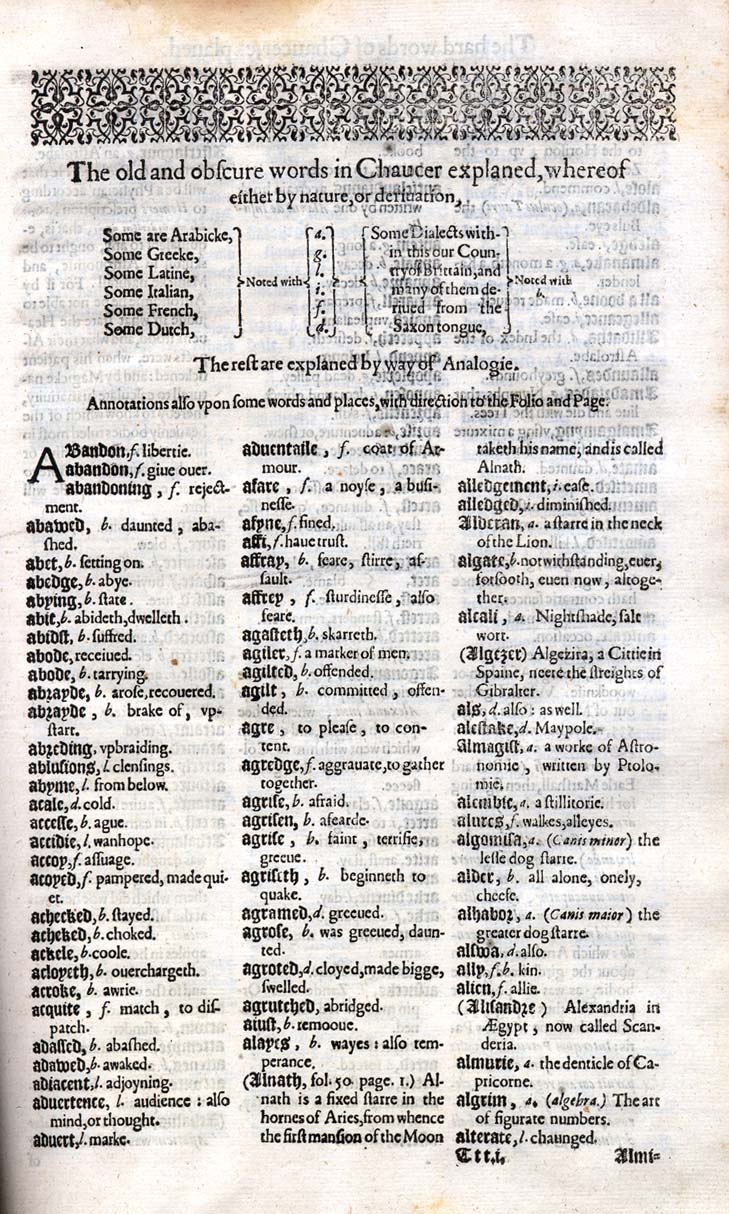 The old and obſcure words in Chaucer explaned, whereof
either by nature, or deriuation,
Some are Arabicke,
Some Greeke,
Some Latine,
Some Italian,
Some French,
Some Dutch,
Noted with
a.
g.
l.
i.
f.
d.
Some Dialects with-
in this our Coun-
try of Brittain, and
many of them de-
riued from the
Saxon tongue,
Noted with
b.
The reſt are explaned by way of Analogie.
Annotations alſo vpon ſome words and places, with direction to the Folio and Page.
ABandon, f. libertie.
abandon, f. giue ouer.
abandoning, f. reject-
ment.
abawed, b. daunted, aba-
ſhed.
abet, b. ſetting on.
abedge, b. abye.
abying, b. ſtate.
abit, b. abideth, dwelleth.
abidſt, b. ſuffred.
abode, receiued.
abode, b. tarrying.
abrayde, b. aroſe, recouered.
abrayde, b. brake of, vp-
ſtart.
abreding, vpbraiding.
ablusions, l. clenſings.
abyme, l. from below.
acale, d. cold.
acceſſe, b. ague.
accidie, l. wanhope.
accoy, f. aſſuage.
acoyed, f. pampered, made qui-
et.
achecked, b. ſtayed.
acheked, b. choked.
ackele, b. coole.
acloyeth, b. ouerchargeth.
acroke, b. awrie.
acquite, f. match, to diſ-
patch.
adaſſed, b. abaſhed.
adawed, b. awaked.
adiacent, l. adjoyning.
aduertence, l. audience : alſo
mind, or thought.
aduert, l. marke.
aduentaile, f. coat of Ar-
mour.
afare, f. a noyſe, a buſi-
neſſe.
afyne, f. fined.
affi, f. haue truſt.
affray, b. feare, ſtirre, aſ-
ſault.
affrey, f. ſturdineſſe, alſo
feare.
agaſteth, b. skarreth.
agiler, f. a marker of men.
agilted, b. offended.
agilt, b. committed, offen-
ded.
agre, to pleaſe, to con-
tent.
agredge, f. aggrauate, to gather
together.
agriſe, b. afraid.
agriſen, b. afearde.
agriſe, b. faint, terrifie,
greeue.
agriſeth, b. beginneth to
quake.
agramed, d. greeued.
agroſe, b. was greeued, daun-
ted.
agroted, d. cloyed, made bigge,
ſwelled.
agrutched, abridged.
aiuſt, b. remooue.
alayes, b. wayes : alſo tem-
perance.
(Alnath, fol. 50. page. 1.) Al-
nath is a fixed ſtarre in the
hornes of Aries, from whence
the firſt manſion of the Moon
taketh his name, and is called
Alnath.
alledgement, i. eaſe.
alledged, i. diminiſhed.
Alderan, a. a ſtarre in the neck
of the Lion.
algate, b. notwithſtanding, euer,
forſooth, euen now, altoge-
ther.
alcali, a. Nightſhade, ſalt
wort.
(Algezer) Algezira, a Cittie in
Spaine, neere the ſtreights of
Gibralter.
als, d. alſo : as well.
aleſtake, d. Maypole.
Almagiſt, a. a worke of Aſtro-
nomie, written by Ptolo-
mie.
alembie, a. a ſtillitorie.
alures, f. walkes, alleyes.
algomiſa, a. (Canis minor) the
leſſe dog ſtarre.
alder, b. all alone, onely,
cheefe.
alhabor, a. (Canis maior) the
greater dog ſtarre.
alſwa, d. alſo.
ally, f. b. kin.
alien, f. allie.
(Aliſandre) Alexandria in
Ægypt, now called Scan-
deria.
almurie, a. the denticle of Ca-
pricorne.
algrim, a. (algebra.) The art
of figurate numbers.
alterate, l. chaunged.
Ttt.i.
Almi-